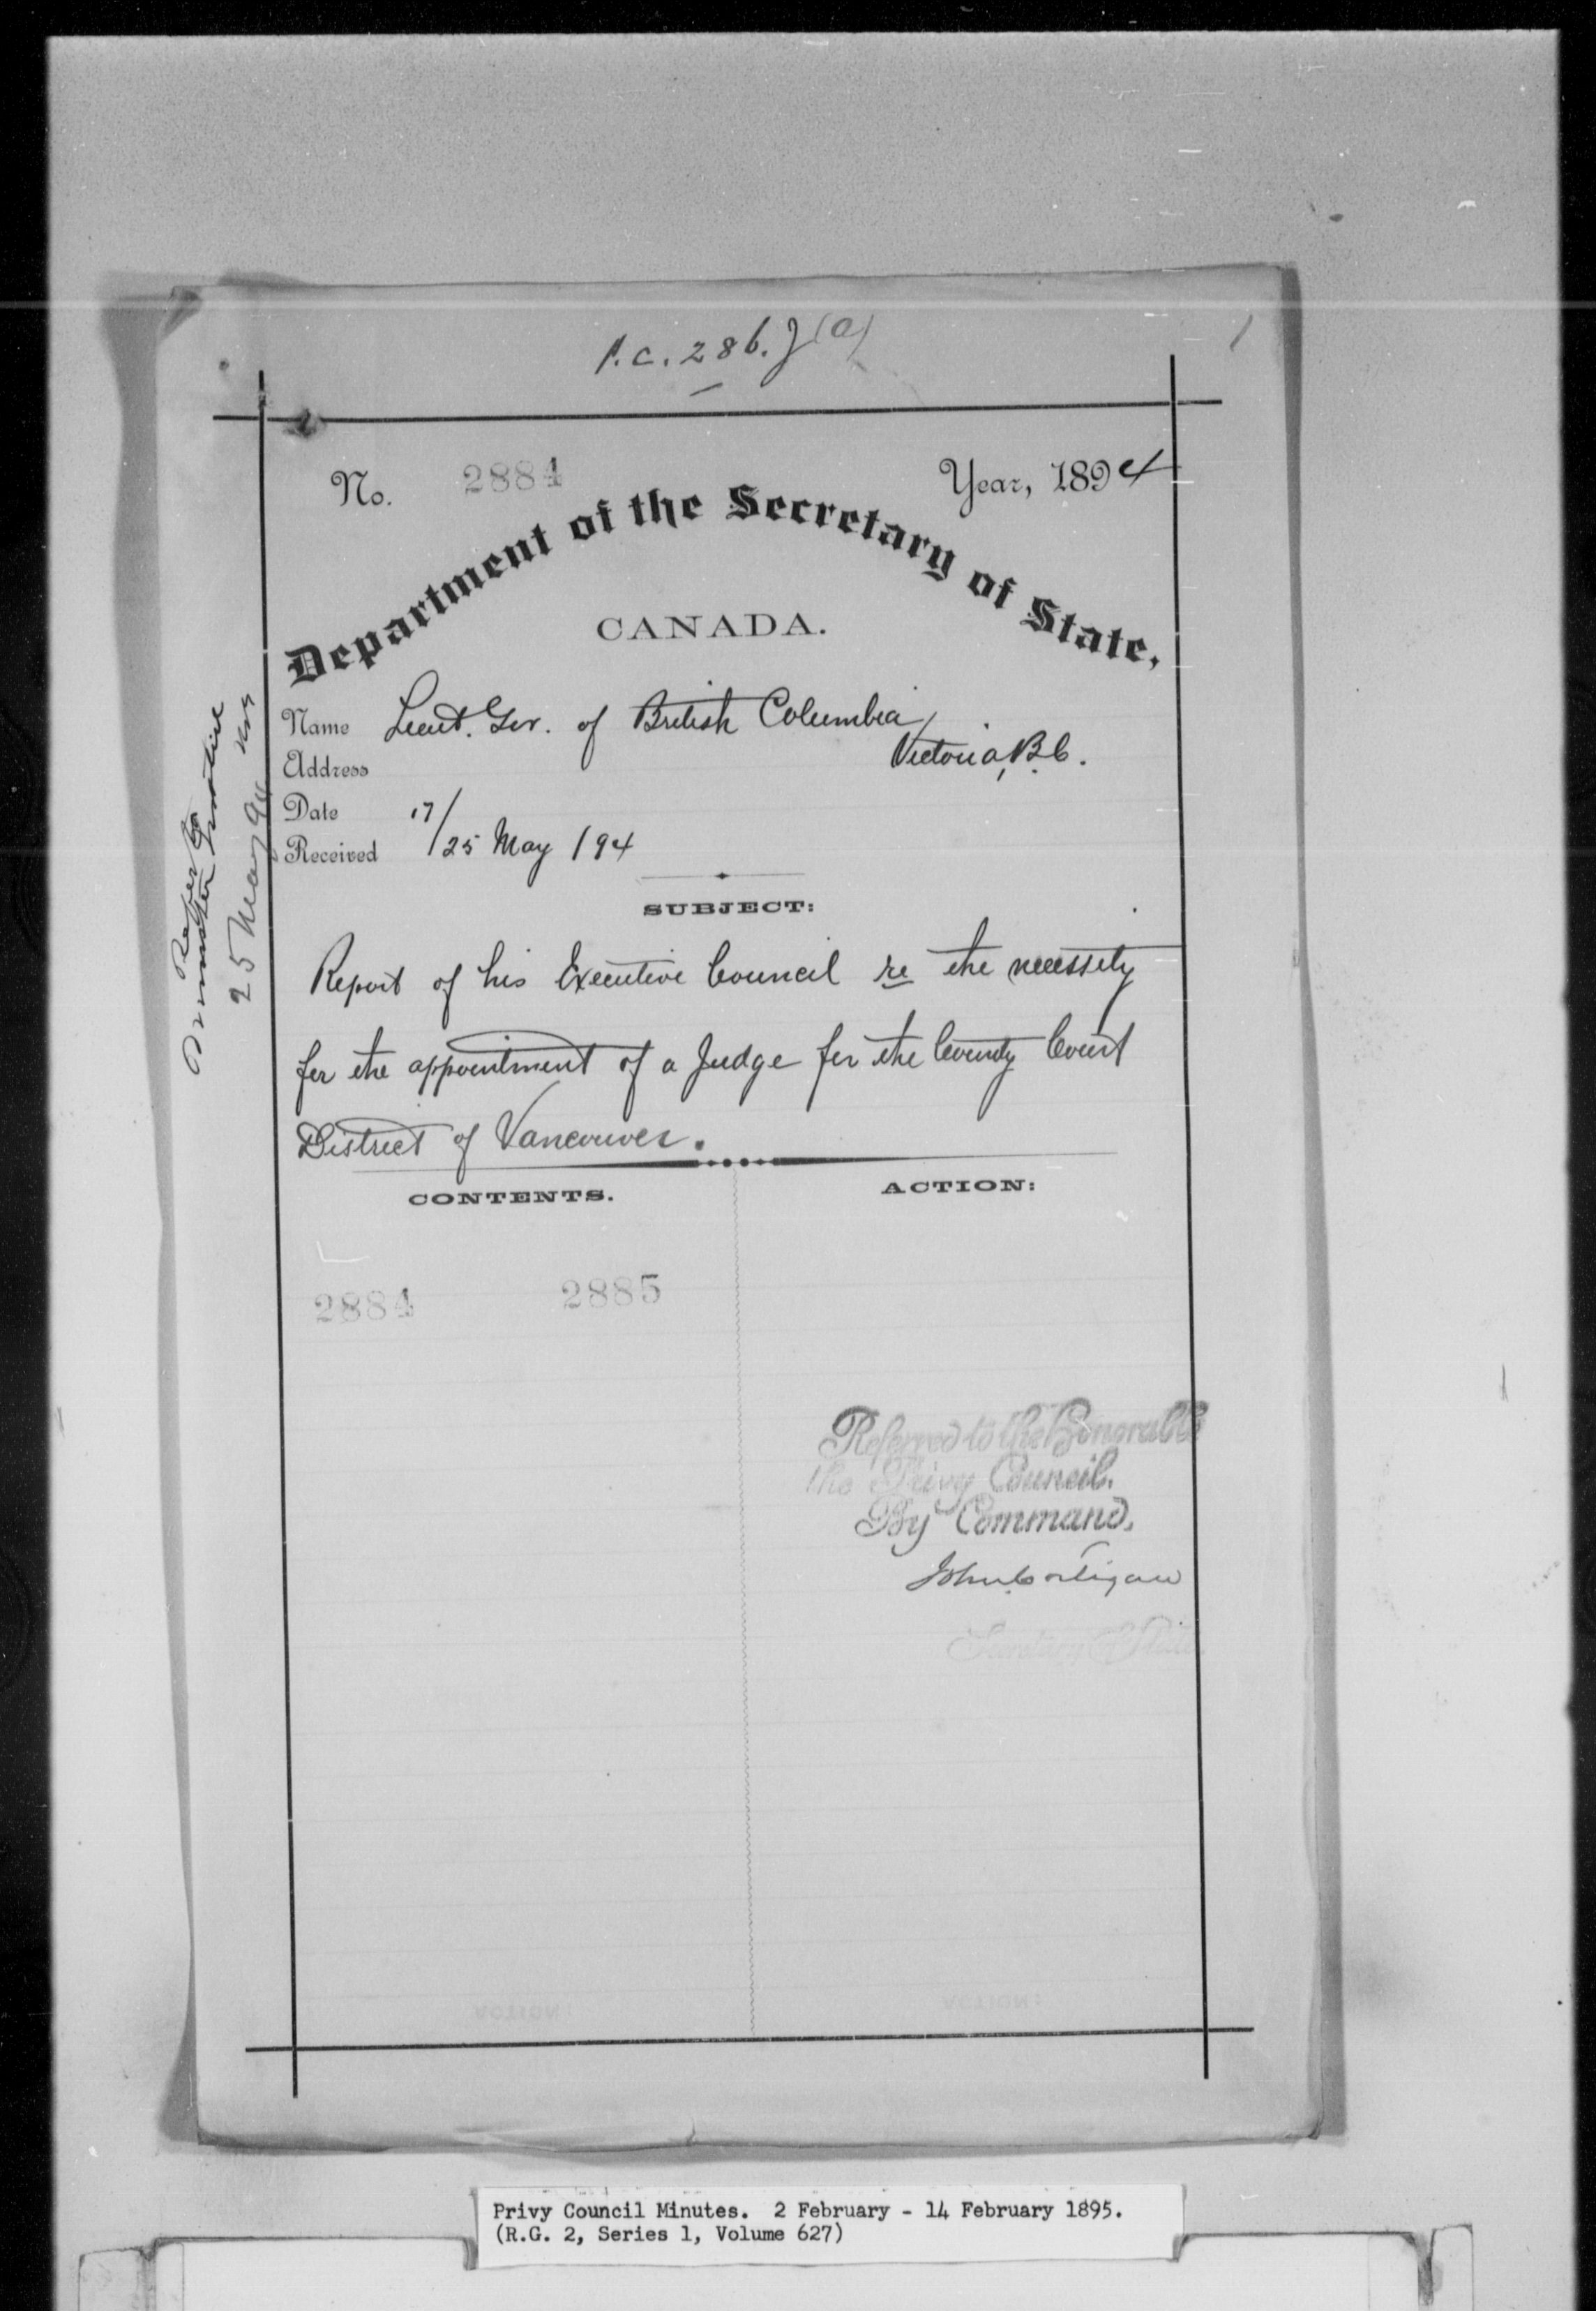 P.C. 286. J (a)
1
No. 2884 Year, 1894
Department of the Secretary of State,
CANADA.
Name Lieut. Gov. of British Columbia,
Address Victoria, B.C.
Date 17/
Received 25 May /94
SUBJECT:
Report of his Executive Council re the necessity
for the appointment of a Judge for the County Court
District of Vancouver.
CONTENTS.
ACTION:
2884 2885
Referred to the Honorable
the Privy Council.
By Command.
John Costigan
Secretary of State
Refer to
Minister Justice
25 May 94
Privy Council Minutes. 2 February - 14 February 1895.
(R.G. 2, Series 1, Volume 627)